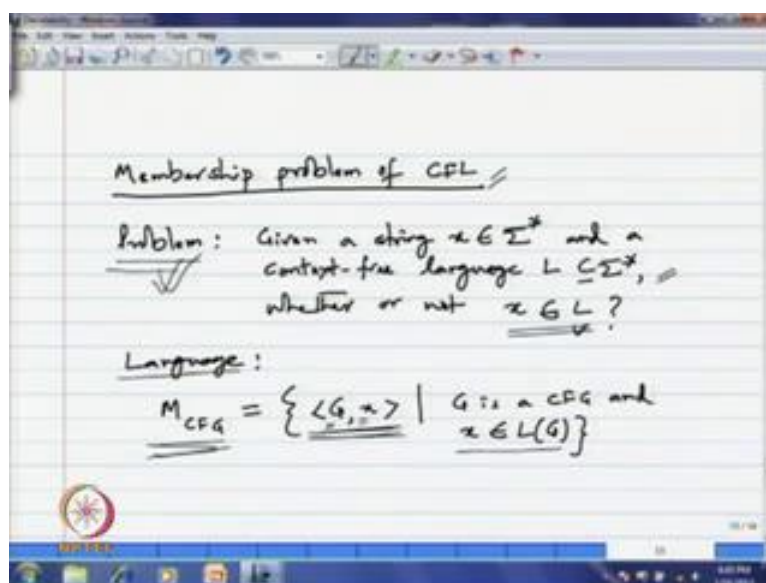 Membership problem of CFL
Problem: Given a string x ∈ Σ* and a
context-free language L ⊆ Σ*,
whether or not x ∈ L ?
Language:
M_CFG = { <G, x> | G is a CFG and
x ∈ L(G)}
NPTEL